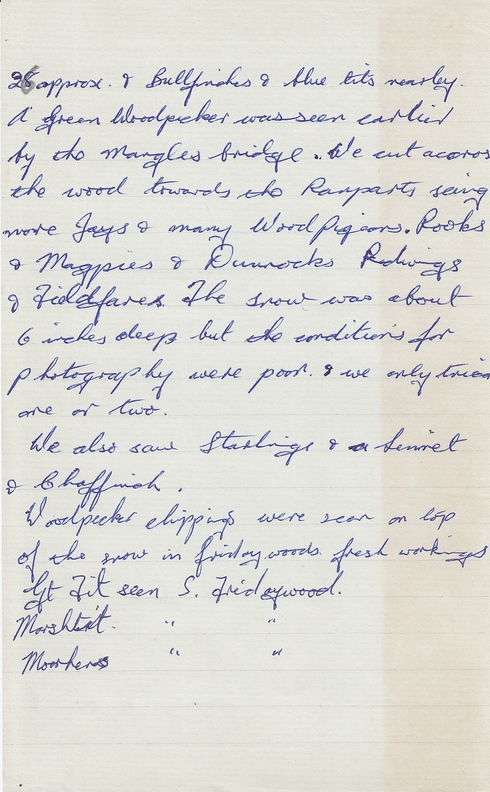 26 approx. & Bullfinches & blue tits nearby.
A green Woodpecker was seen earlier
by the mangles bridge. We cut across
the wood towards the Ramparts seing
more Jays & many Wood Pigeons. Rooks
& Magpies & Dunnocks Redwings
& Fieldfares. The snow was about
6 inches deep but the conditions for
photography were poor. & we only tried
one or two.
We also saw Starlings & a linnet
& Chaffinch.
Woodpecker chippings were seen on top
of the snow in fridaywoods. fresh workings
Gt Tit seen S. Fridaywood.
Marshtit. " "
Moorhens " "